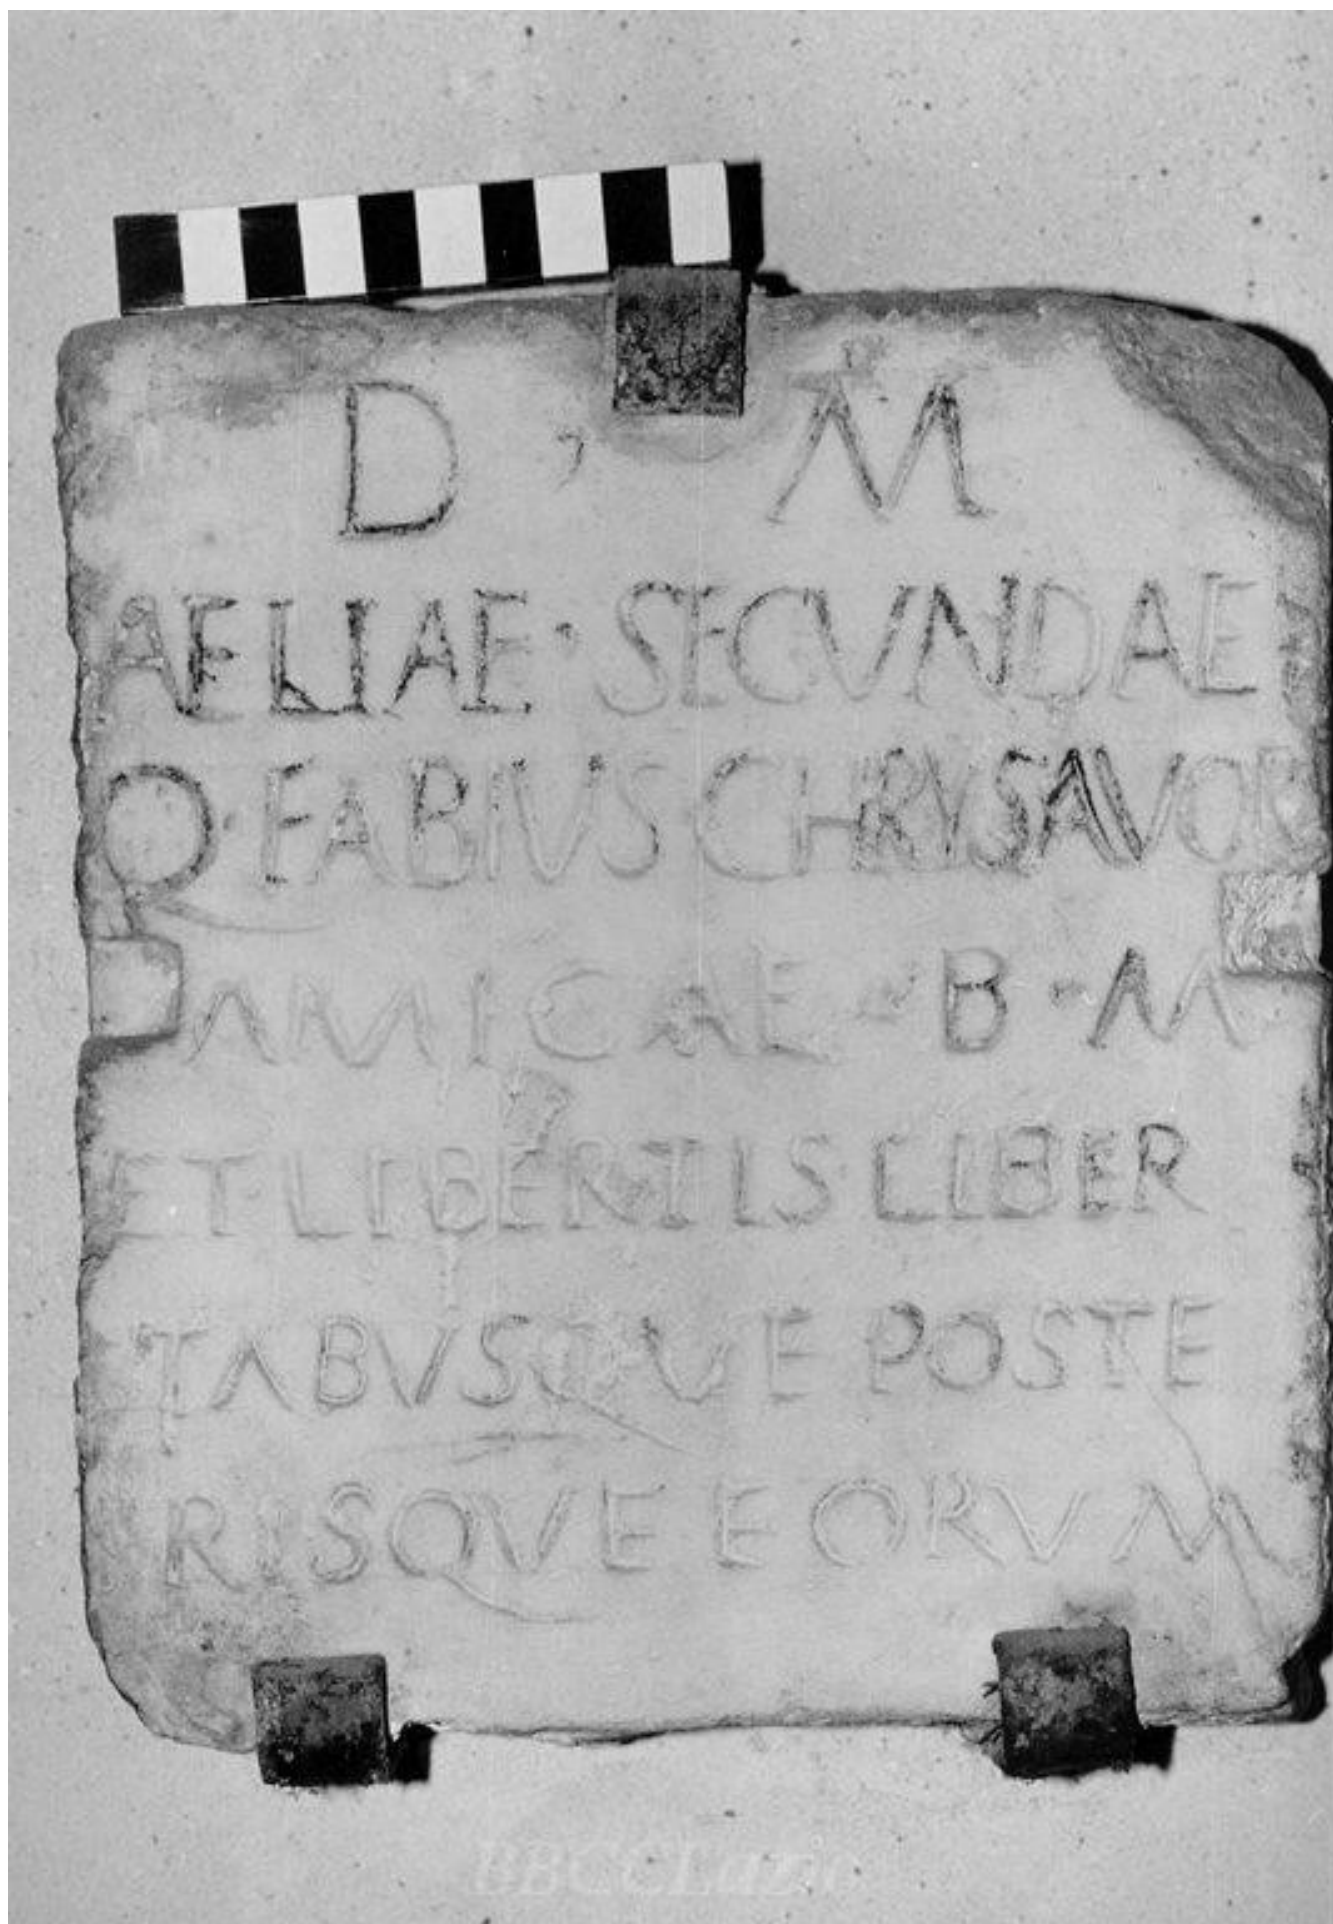 D , M
AELIAE · SECVNDAE
Q · FABIVS CHRYSAVOR
AMICAE · B · M
ET · LIBERTIS LIBER
TABVSQVE POSTE
RISQVE EORVM
BBCCLazio